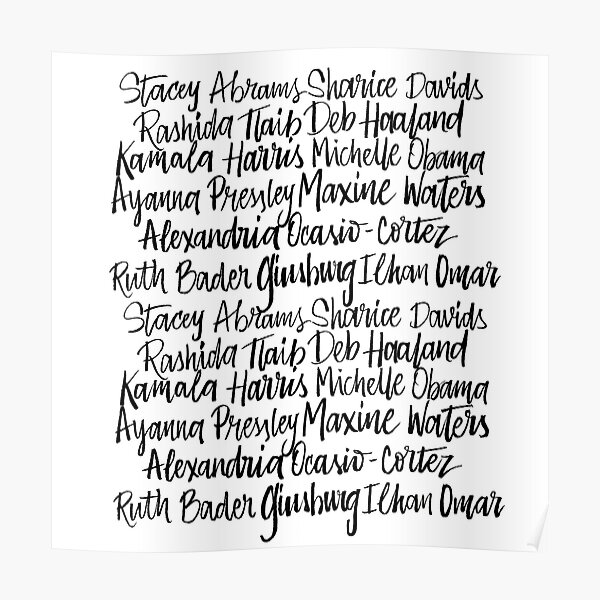 Stacey Abrams Sharice Davids
Rashida Tlaib Deb Haaland
Kamala Harris Michelle Obama
Ayanna Pressley Maxine Waters
Alexandria Ocasio-Cortez
Ruth Bader Ginsburg Ilhan Omar
Stacey Abrams Sharice Davids
Rashida Tlaib Deb Haaland
Kamala Harris Michelle Obama
Ayanna Pressley Maxine Waters
Alexandria Ocasio-Cortez
Ruth Bader Ginsburg Ilhan Omar